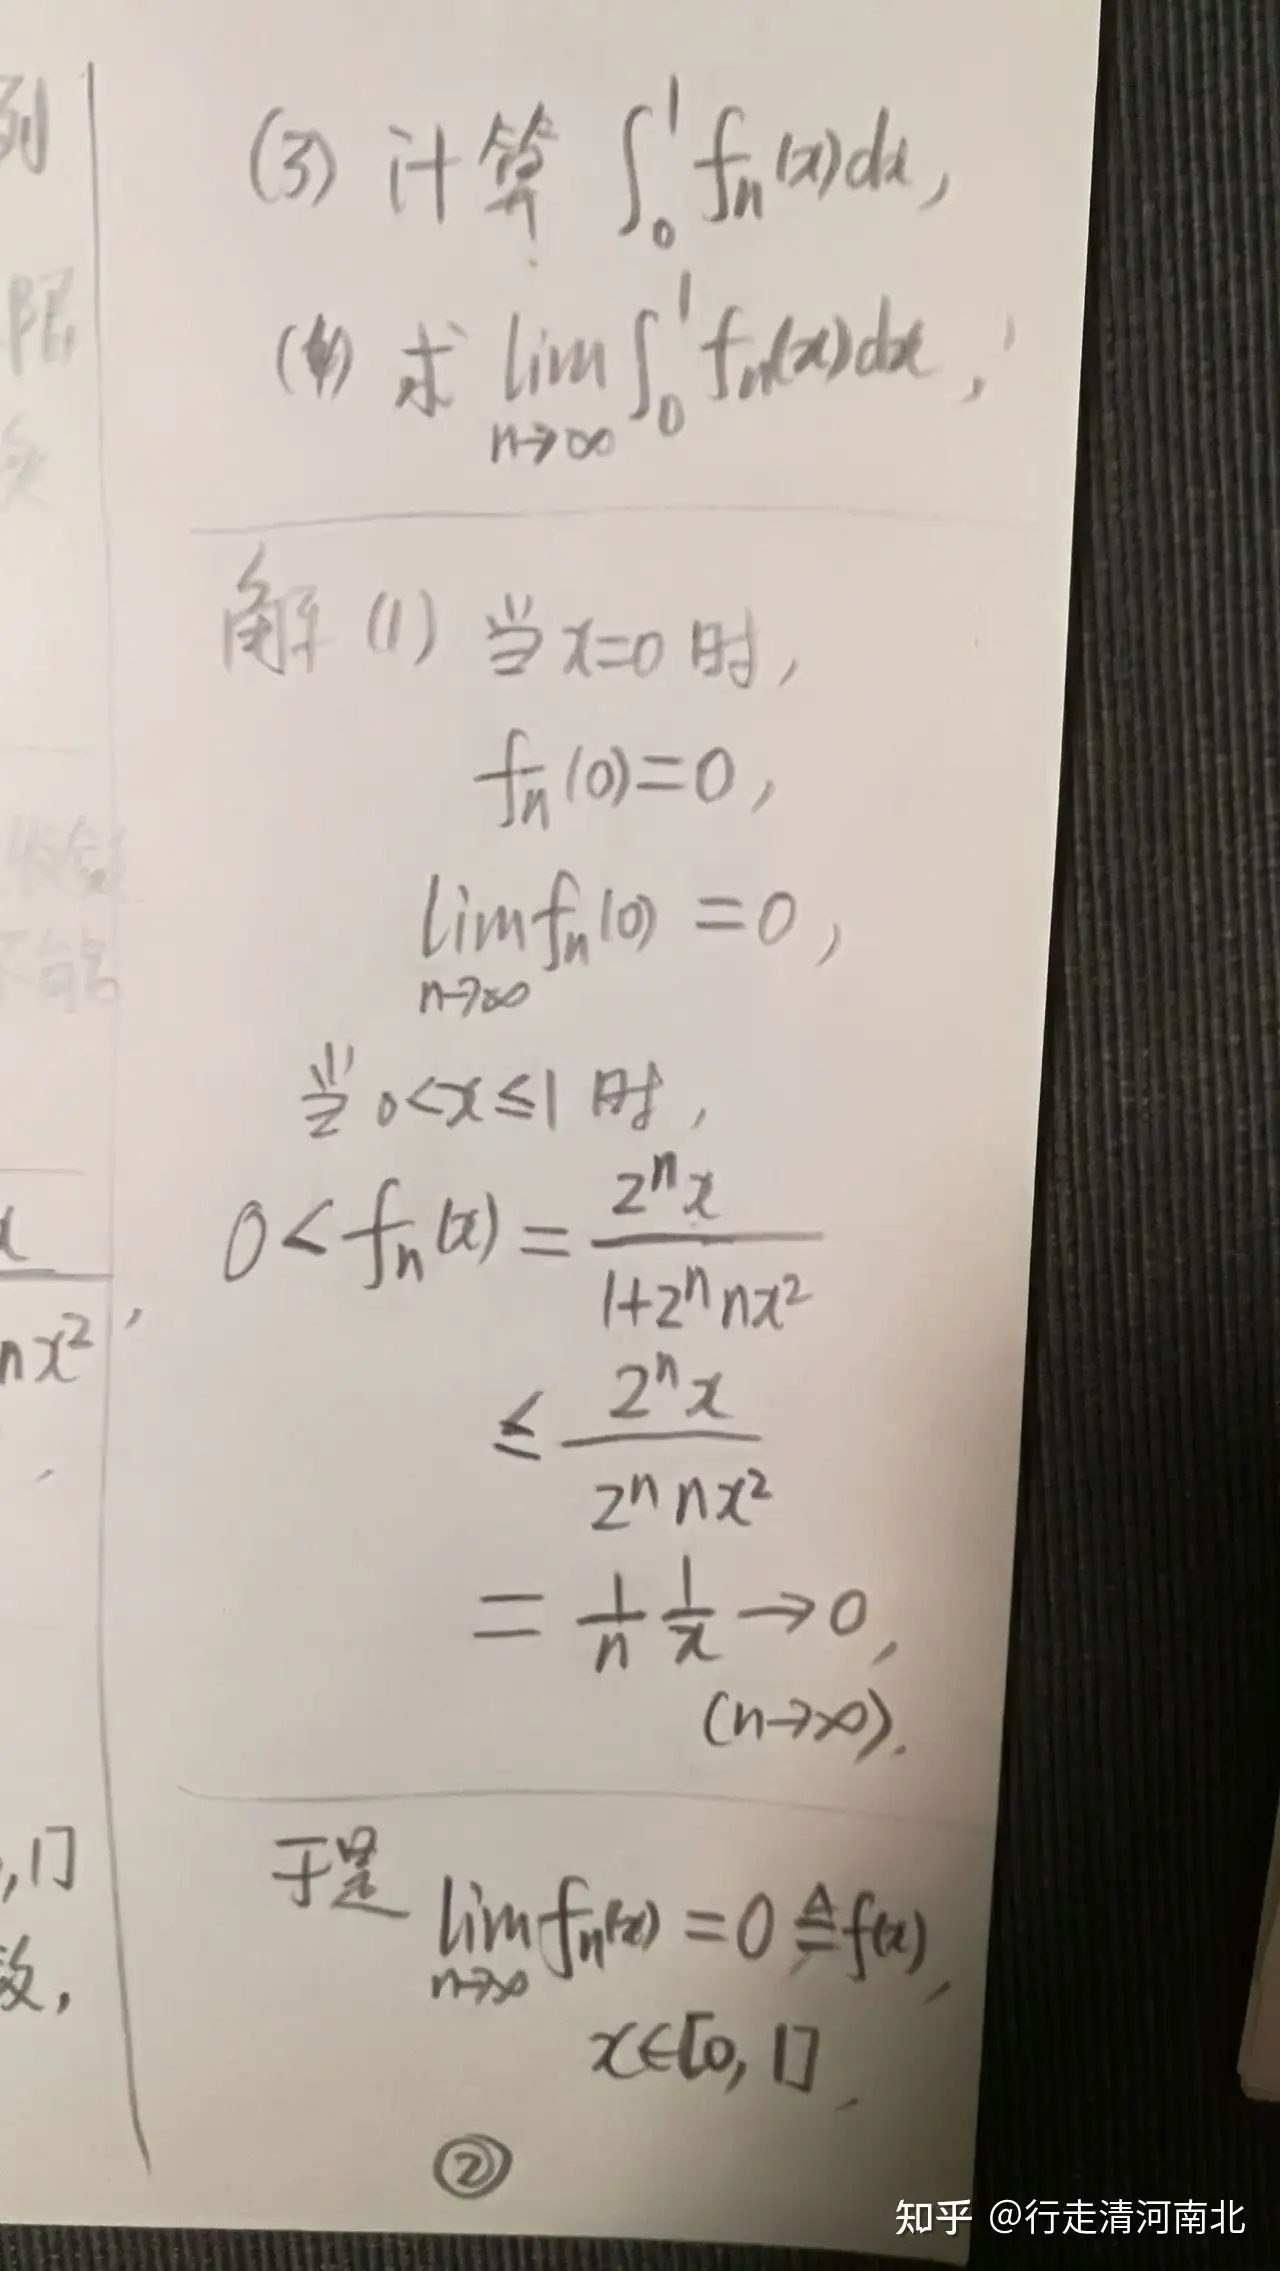 列
限
(3) 计算 ∫₀¹ fₙ(x)dx,
(4) 求 lim ∫₀¹ fₙ(x)dx,
n→∞
解 (1) 当 x=0 时,
fₙ(0)=0,
lim fₙ(0) =0,
n→∞
收敛
不能
当 0<x≤1 时,
0< fₙ(x) = 2ⁿx / (1+2ⁿnx²)
x
nx²,
≤ 2ⁿx / (2ⁿnx²)
= 1/n 1/x →0,
(n→∞).
,1]
于是 lim fₙ(x) =0 ≜ f(x),
n→∞
x∈[0,1],
②
知乎 @行走清河南北